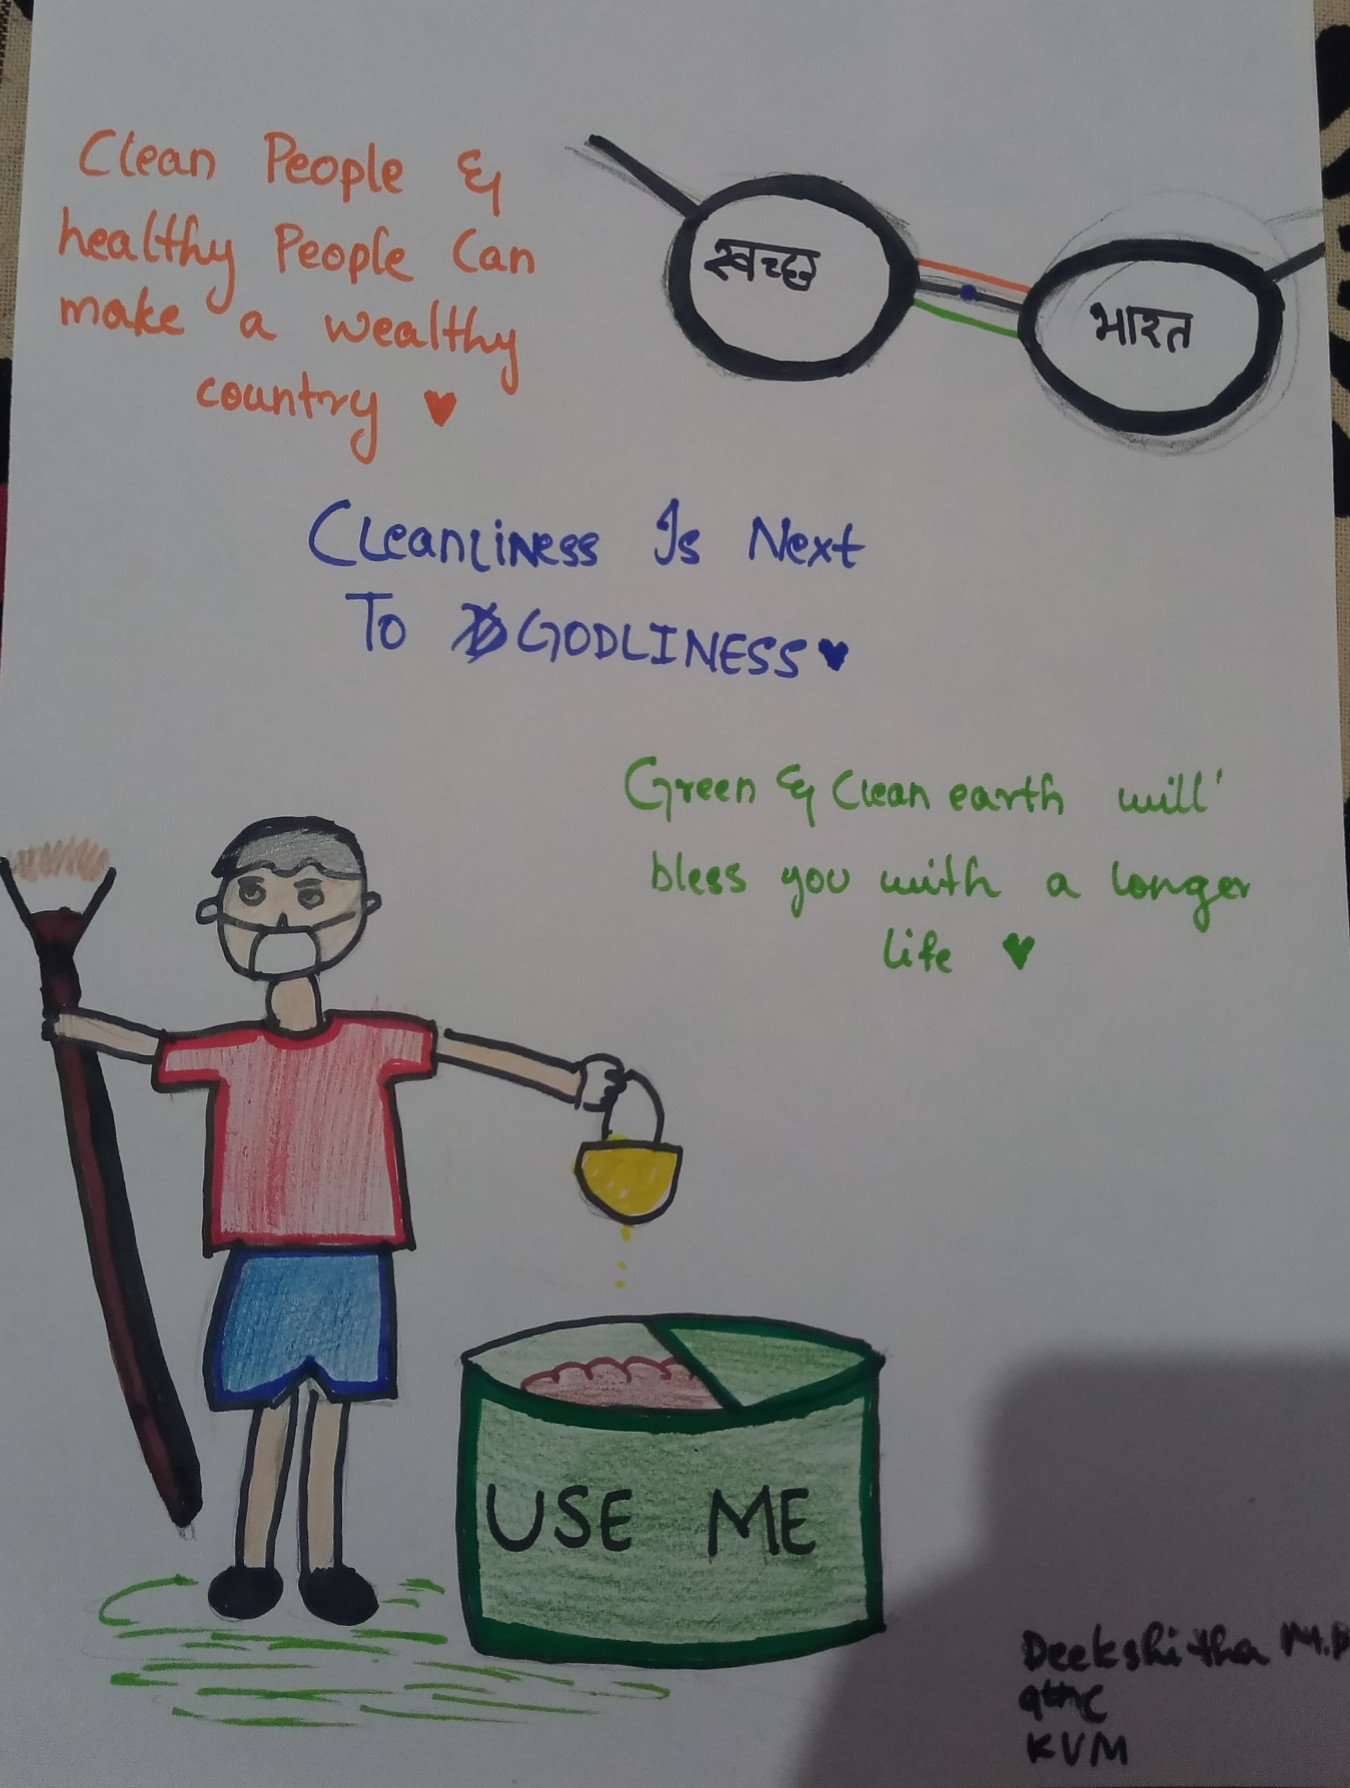 Clean People &
healthy People Can
make a wealthy
country
स्वच्छ
भारत
Cleanliness Is Next
To GODLINESS
Green & Clean earth will'
bless you with a longer
life
USE ME
Deekshitha M.P
9th C
KVM